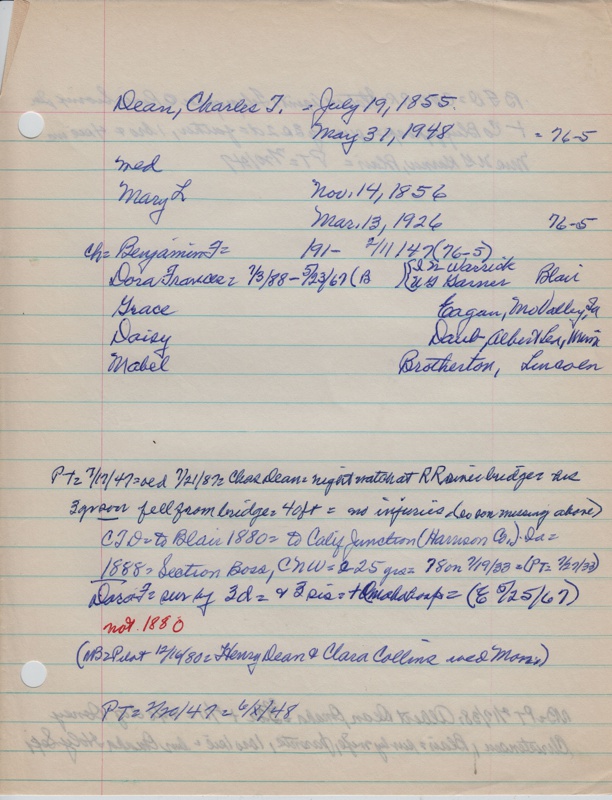 Dean, Charles T. - July 19, 1855.
May 31, 1948 = 76-5
med
Mary L Nov. 14, 1856
Mar. 13, 1926 76-5
ch= Benjamin F= 191- 2/11/47 (76-5)
Dora Frances= 7/3/88 - 5/23/67 (B Warrick
Garner Blair
Grace Eagan, Mo Valley, Ia
Daisy Daub, Albert Lea, Minn
Mabel Brotherton, Lincoln
PT= 7/17/47= 7/21/87= Chas Dean= night watch at RR river bridge= his
3 yr son fell from bridge= 40 ft = no injuries (so son missing above)
CTD= to Blair 1880= to Calif Junction (Harrison Co.) Ia=
1888= Section Boss, CNW= 25 yrs= 78 on 7/19/33= (PT= 7/27/33)
Dora F= sur by 3 d= & 3 sis= + = (E 5/25/67)
not 1880
(NB= Pilot 12/16/80= Henry Dean & Clara Collins med )
PT= 2/20/47 = 6/ /48